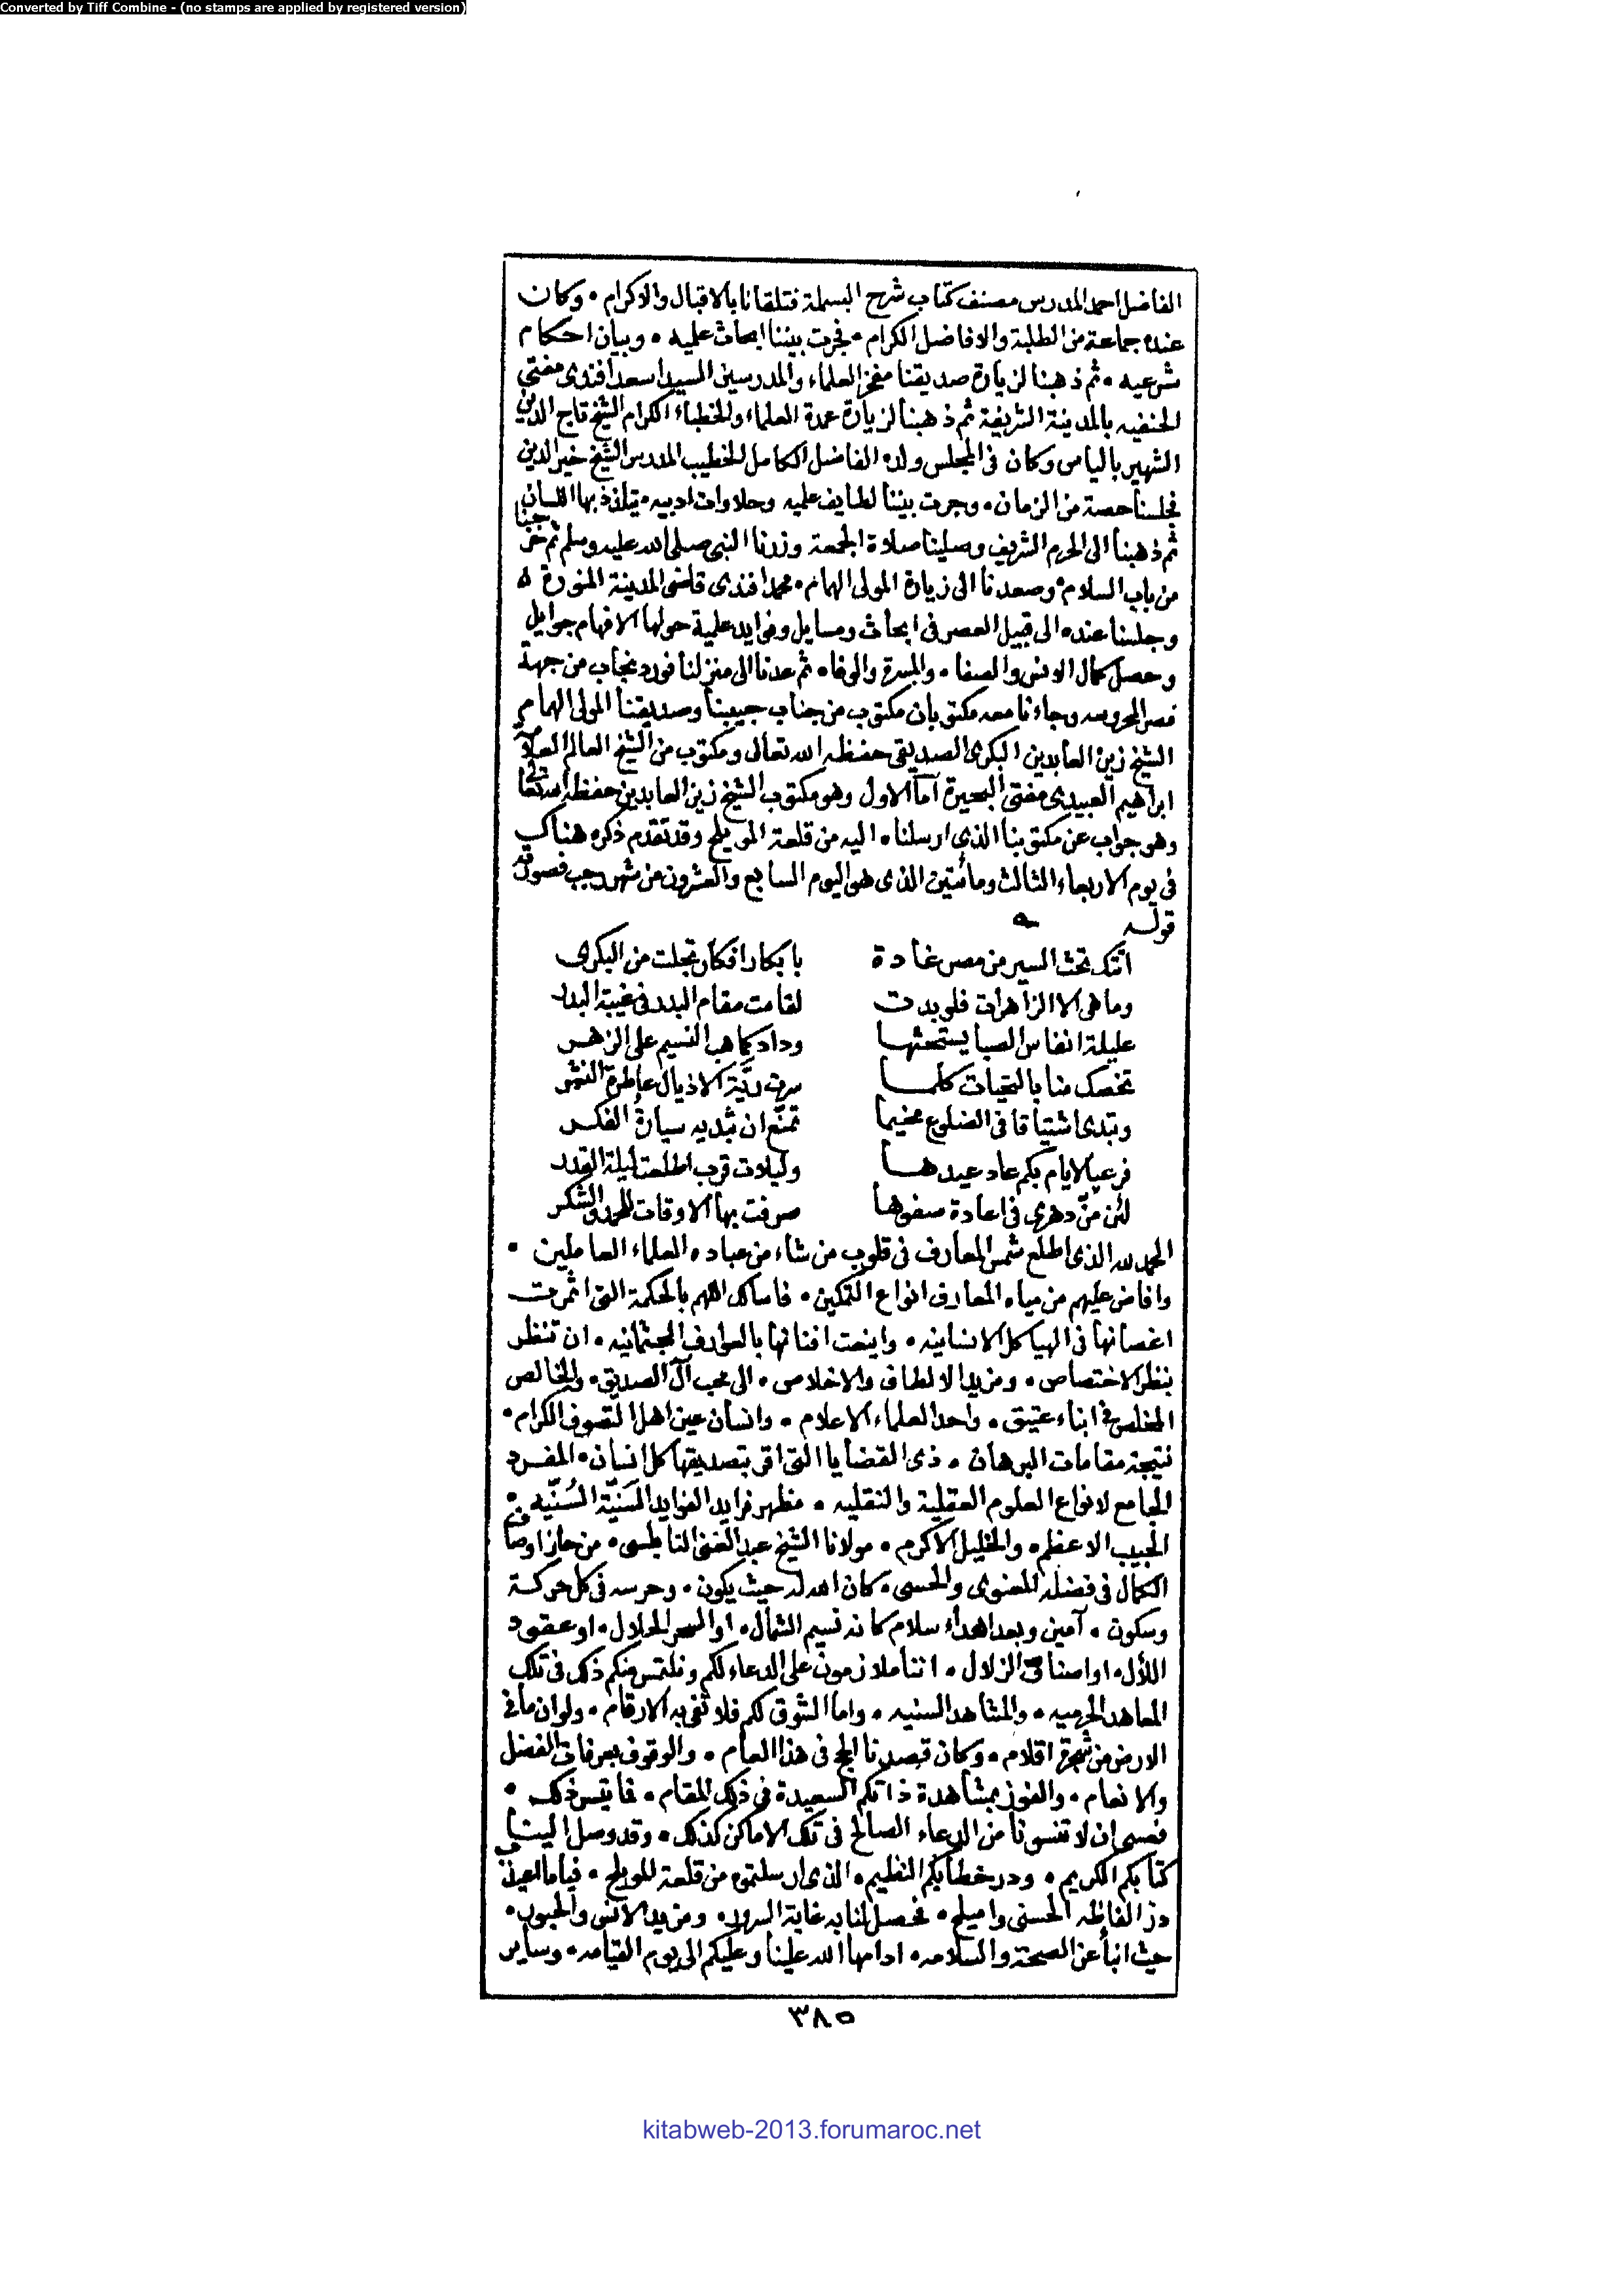 Converted by Tiff Combine - (no stamps are applied by registered version)
الفاضل احمد المدرس مصنف كتاب شرح البسملة فتلقانا بالاقبال والاكرام • وكان
عنده جماعة من الطلبة والافاضل الكرام • فجرت بيننا ابحاث علميه • وبيان احكام
شرعيه • ثم ذهبنا لزيارة صديقنا مفخر العلماء والمدرسين السيد اسعد افندى مفتى
الحنفيه بالمدينة الشريفة ثم ذهبنا لزيارة عمدة العلماء والخطباء الكرام الشيخ تاج الدين
الشهير بالياس وكان فى المجلس ولده الفاضل الكامل الخطيب المدرس الشيخ خير الدين
فجلسنا حصة من الزمان • وجرت بيننا لطايف علميه وحلاوات ادبيه • يتلذذ بها اللسان
ثم ذهبنا الى الحرم الشريف وصلينا صلاة الجمعة وزرنا النبى صلى الله عليه وسلم ثم خرجنا
من باب السلام • وصعدنا الى زيارة المولى الهمام • محمد افندى قاضى المدينة المنورة ه
وجلسنا عنده الى قبيل العصر فى ابحاث ومسايل وفوايد علمية حولها الافهام جوايل
وحصل كمال الانس والصفا • والمسرة والوفا • ثم عدنا الى منزلنا فورد نجاب من جهة
مصر المحروسه وجاءنا معه مكتوبان مكتوب من جناب حبيبنا وصديقنا المولى الهمام
الشيخ زين العابدين البكرى الصديقى حفظه الله تعالى ومكتوب من الشيخ العالم العلامة
ابراهيم العبيدى مفتى البحيرة اما الاول وهو مكتوب الشيخ زين العابدين حفظه الله تعالى
وهو جواب عن مكتوبنا الذى ارسلناه اليه من قلعة المويلح وقد تقدم ذكره هناك
فى يوم الاربعاء الثالث ومائتين الذى هو اليوم السابع والعشرون من شهر رجب فصورة
قوله
اتتك تحث السير من مصر غادة بابكار افكار تجلت من البكرى
وما هى الا الزاهرات فلو بدت لقامت مقام البدر فى غيبة البدر
عليلة انفاس الصبا يستحثها وداد كما هب النسيم على الزهر
تخصك منا بالتحيات كلما سرت ريّة الاذيال عاطرة النشر
وتبدى اشتياقا فى الضلوع مخيما تمنّع ان تبديه سيارةُ الفكر
فرعيا لايام بكم عاد عيدها وليلات قرب اطلعت ليلة القدر
لئن منّ دهرى فى اعادة صفوها صرفت بها الاوقات للحمد والشكر
الحمد لله الذى اطلع شمس المعارف فى قلوب من شاء من عباده العلماء العاملين •
وافاض عليهم من مياه المعارف انواع التمكين • فاسالك اللهم بالحكمة التى اثمرت
اغصانها فى الهياكل الانسانيه • واينعت افنانها بالعوارف الجثمانيه • ان تنظر
بنظر الاختصاص • ومزيد الالطاف والاخلاص • الى محب آل الصديق • والخالص
المخلص فى ابناء عتيق • واحد العلماء الاعلام • وانسان عين اهل التصوف الكرام •
نتيجة مقامات البرهان • ذى القضايا التى اقر بتصديقها كل انسان • المفرد
الجامع لانواع العلوم العقلية والنقليه • مظهر فرايد الفوايد السَنِيّة السُنّيه •
الحبيب الاعظم • والخليل الاكرم • مولانا الشيخ عبد الغنى النابلسى • من حاز اوصاف
الكمال فى فضله المعنوى والحسى • كان الله له حيث يكون • وحرسه فى كل حركة
وسكون • آمين وبعد اهداء سلام كانه نسيم الشمال • او السحر الحلال • او عقود
اللأل • او اصناف الزلال • اننا ملازمون على الدعاء لكم ونلتمس منكم ذلك فى تلك
المعاهد الحرميه • والمشاهد السنيه • واما الشوق لكم فلا تفى به الارقام • ولو ان ما فى
الارض من شجرة اقلام • وكان قصدنا الحج فى هذا العام • والوقوف بعرفات الفضل
والانعام • والفوز بمشاهدة ذاتكم السعيدة فى ذلك المقام • فما تيسر ذلك •
فعسى ان لا تنسونا من الدعاء الصالح فى تلك الاماكن كذلك • وقد وصل الينا
كتابكم الكريم • ودر خطابكم النظيم • الذى ارسلتموه من قلعة المويلح • فياما اعيذب
درر الفاظه الحسنى واميلح • فحصل لنا به غاية السرور • ومزيد الانس والحبور •
حيث انبأ عن الصحة والسلامه • ادامها الله علينا وعليكم الى يوم القيامه • وساير
٣٨٥
kitabweb-2013.forumaroc.net